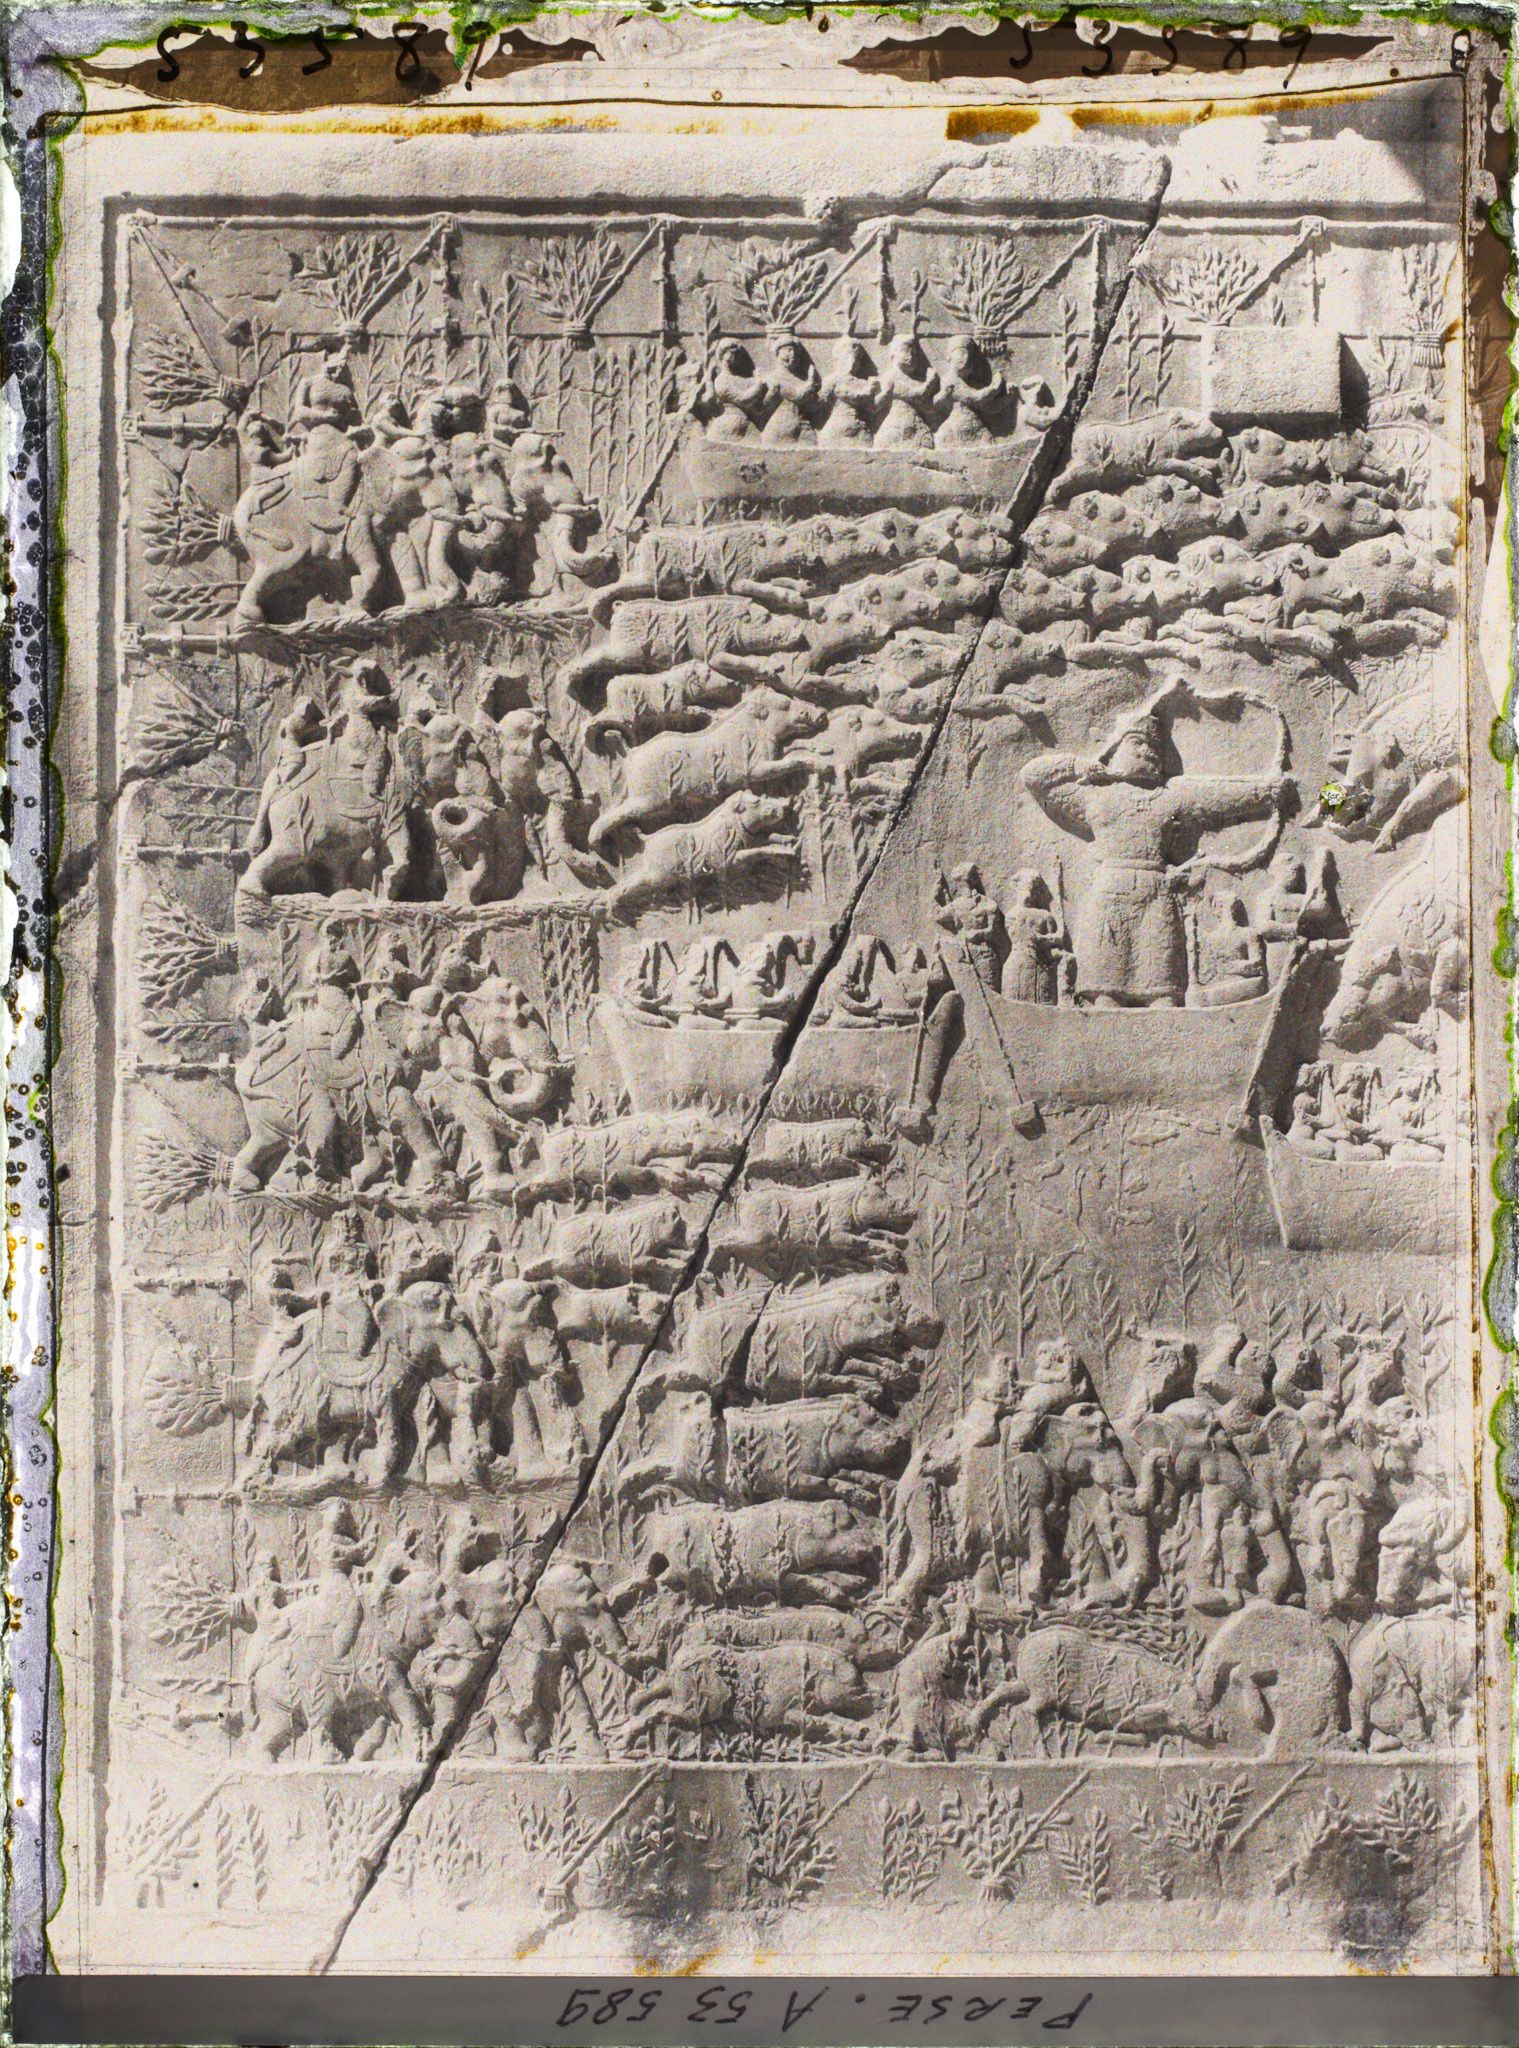 53589
53589
8
PERSE. A 53 589